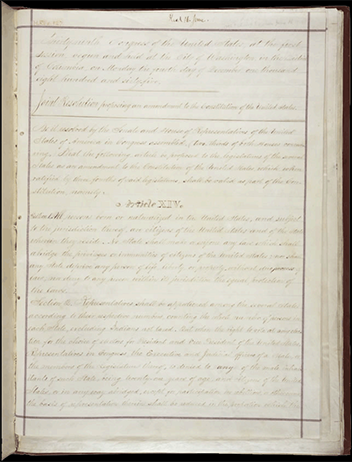 Congress of the United States, at the first
Session, begun and held at the City of Washington, in the District
of Columbia, on Monday the fourth day of December, one thousand
eight hundred and sixty-five.
Joint Resolution proposing an amendment to the Constitution of the United States.
Be it resolved by the Senate and House of Representatives of the United
States of America in Congress assembled, (two thirds of both Houses concur-
ring,) That the following article be proposed to the legislatures of the several
States as an amendment to the Constitution of the United States, which, when
ratified by three fourths of said legislatures, shall be valid as part of the Con-
stitution, namely:
Article XIV.
Section 1. All persons born or naturalized in the United States, and subject
to the jurisdiction thereof, are citizens of the United States and of the State
wherein they reside. No State shall make or enforce any law which shall
abridge the privileges or immunities of citizens of the United States; nor shall
any State deprive any person of life, liberty, or property, without due process of
law; nor deny to any person within its jurisdiction the equal protection of
the laws.
Section 2. Representatives shall be apportioned among the several States
according to their respective numbers, counting the whole number of persons in
each State, excluding Indians not taxed. But when the right to vote at any elec-
tion for the choice of electors for President and Vice President of the United States,
Representatives in Congress, the Executive and Judicial officers of a State, or
the members of the Legislature thereof, is denied to any of the male inhab-
itants of such State, being twenty-one years of age, and citizens of the United
States, or in any way abridged, except for participation in rebellion, or other crime,
the basis of representation therein shall be reduced in the proportion which the